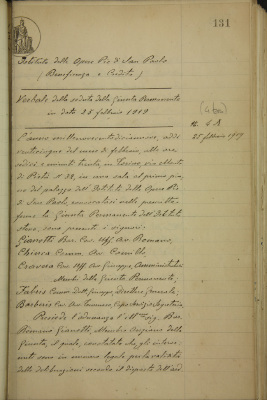 131
Istituto delle Opere Pie di San Paolo
(Beneficenza e Credito)
Verbale della seduta della Giunta Permanente
in data 25 febbraio 1919
25 febbraio 1919
L'anno millenovecentodiciannove, addì
venticinque del mese di febbraio, alle ore
sedici e minuti trenta, in Torino, via
di Pietà N° 32, in una sala al primo pia-
no del palazzo dell'Istituto delle Opere Pie
di San Paolo, convocatasi nelle
forme la Giunta Permanente dell'Istituto
stesso, sono presenti i signori:
Gianotti Bar. Cav. Uff. Avv. Romano,
Chiesa Comm. Avv. Camillo,
Cravera Cav. Uff. Avv. Giuseppe,
Membri della Giunta Permanente,
Fabris Comm. Dott. Giuseppe, Direttore Generale,
Barberis Cav. Avv. Capo Servizio Segretario
Presiede l'adunanza l'Ill.mo Sig. Bar.
Romano Gianotti, Membro Anziano della
Giunta, il quale, constatato che gli interve-
nuti sono in numero legale per la validità
delle deliberazioni secondo il disposto dell'art.